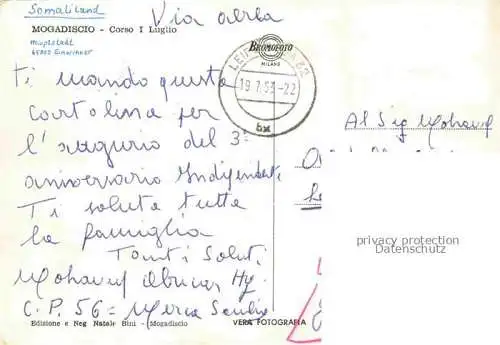 Somaliland
Via aerea
MOGADISCIO - Corso I Luglio
Hauptstadt
BROMOFOTO
MILANO
19.7.63-22
bx
Ti mando questa
cartolina per
l'augurio del 3º
anniversario Indipendenti
Ti saluta tutta
la famiglia
Tanti Saluti
Al Sig Mohamed
privacy protection
Datenschutz
C.P. 56 = Merca
Edizione e Neg Natale Bini - Mogadiscio
VERA FOTOGRAFIA